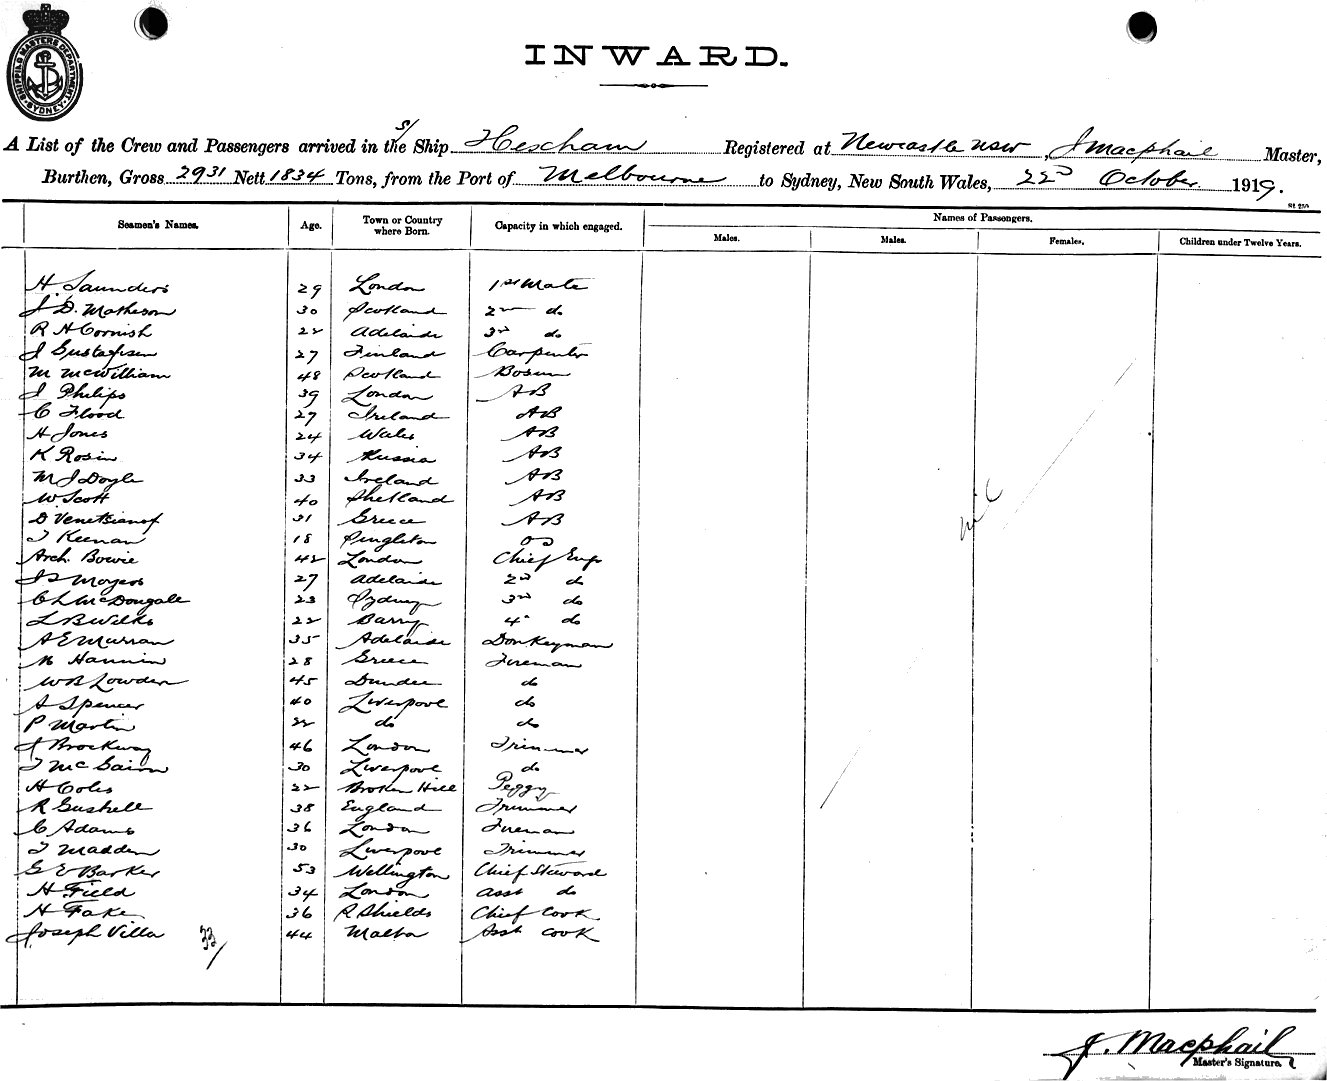 SHIPPING MASTERS DEPARTMENT SYDNEY
INWARD.
A List of the Crew and Passengers arrived in the S/ Ship Hexham Registered at Newcastle NSW, J Macphail Master,
Burthen, Gross 2931 Nett 1834 Tons, from the Port of Melbourne to Sydney, New South Wales, 22nd October 1919.
Seamen's Names. Age. Town or Country where Born. Capacity in which engaged. Names of Passengers.
Males. Males. Females. Children under Twelve Years.
H Saunders 29 London 1st Mate
J D. Matheson 30 Scotland 2nd do
R H Cornish 22 Adelaide 3rd do
J Gustafsen 27 Finland Carpenter
M McWilliam 48 Scotland Bosun
J Philips 39 London AB
C Flood 27 Ireland AB
H Jones 24 Wales AB
K Rosin 34 Russia AB
M J Doyle 33 Ireland AB
W Scott 40 Shetland AB
D Venetsianof 31 Greece AB
T Keenan 18 Singleton OS
Arch. Bowie 42 London Chief Engr
J S Moyes 27 Adelaide 2nd do
C L McDougall 23 Sydney 3rd do
L B Wilks 22 Barry 4 do
A E Murran 35 Adelaide Donkeyman
N Hannin 28 Greece Fireman
W B Lowden 45 Dundee do
A Spencer 40 Liverpool do
P Martin 22 do do
J Brockway 46 London Trimmer
T McGairn 30 Liverpool do
H Coles 22 Broken Hill Peggy
R Gushell 38 England Trimmer
C Adams 36 London Fireman
T Madden 30 Liverpool Trimmer
G E Barker 53 Wellington Chief Steward
H Field 34 London Asst do
H Fake 36 S Shields Chief Cook
Joseph Villa 44 Malta Asst Cook
33/
nil
J. Macphail
Master's Signature.